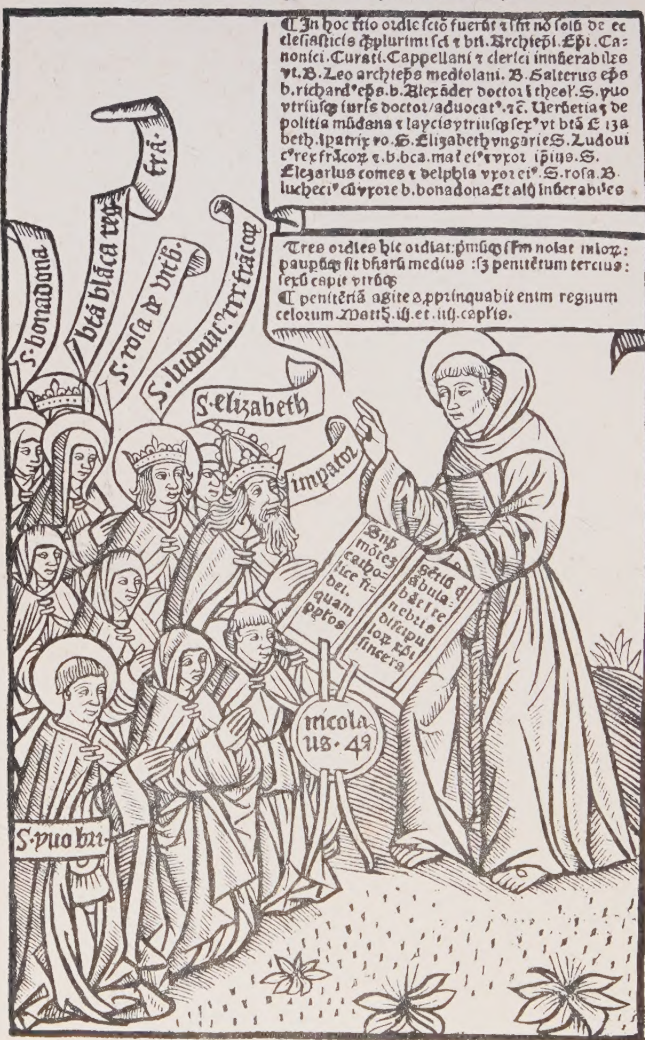 ¶ In hoc t̄tio ordīe sctō fuerūt ⁊ sūt nō solū de ec
clesiasticis q̄plurimi sci ⁊ bti. Archiepī. Epī. Ca-
nonici. Curati. Cappellani ⁊ clerici innūerabiles
vt. B. Leo archiep̄s mediolani. B. Galterus ep̄s
b. richardꝰ ep̄s. b. Alexāder doctor ī theol. S. yuo
vtriusq̨ iuris doctor/aduocatꝰ. ⁊c̄. Uerūetiā ⁊ de
politia mūdana ⁊ laycis vtriusq̨ sexꝰ vt btā E iza
beth. īpatrix ro. S. Elizabeth vngarie S. Ludoui
cꝰ rex frācoꝝ ⁊. b. bca. mat̄ eiꝰ ⁊ vxor ip̄ius. S.
Elezarius comes ⁊ delphla vxor eiꝰ. S. rosa. B.
lucheciꝰ cū vxore b. bonadona Et alij inūerabiles
Tres ordīes hic ordīat: p̄mūq̨ fr̄m noīat mīoꝝ:
paup̄ūq̨ fit dn̄arū medius: sꝫ penitētum tercius:
sexū capit vtrūq̨
¶ penitētiā agite appropinquabit enim regnum
celorum. Matth̄. iij. et. iiij. capl̄is.
frā.
S. bonadona
btā blāca reḡ
S. rosa de viterb.
S. ludouicꝰ rex frācoꝝ
S. elizabeth
impator
Sup̄
mōtez
catho-
lice fi-
dei.
quam
xp̄tos
gētiū q̄
ābula-
bāt ī te
nebris
discipu
loꝝ xp̄i
sincera
nicola
us. 4ꝰ
S. yuo bri.